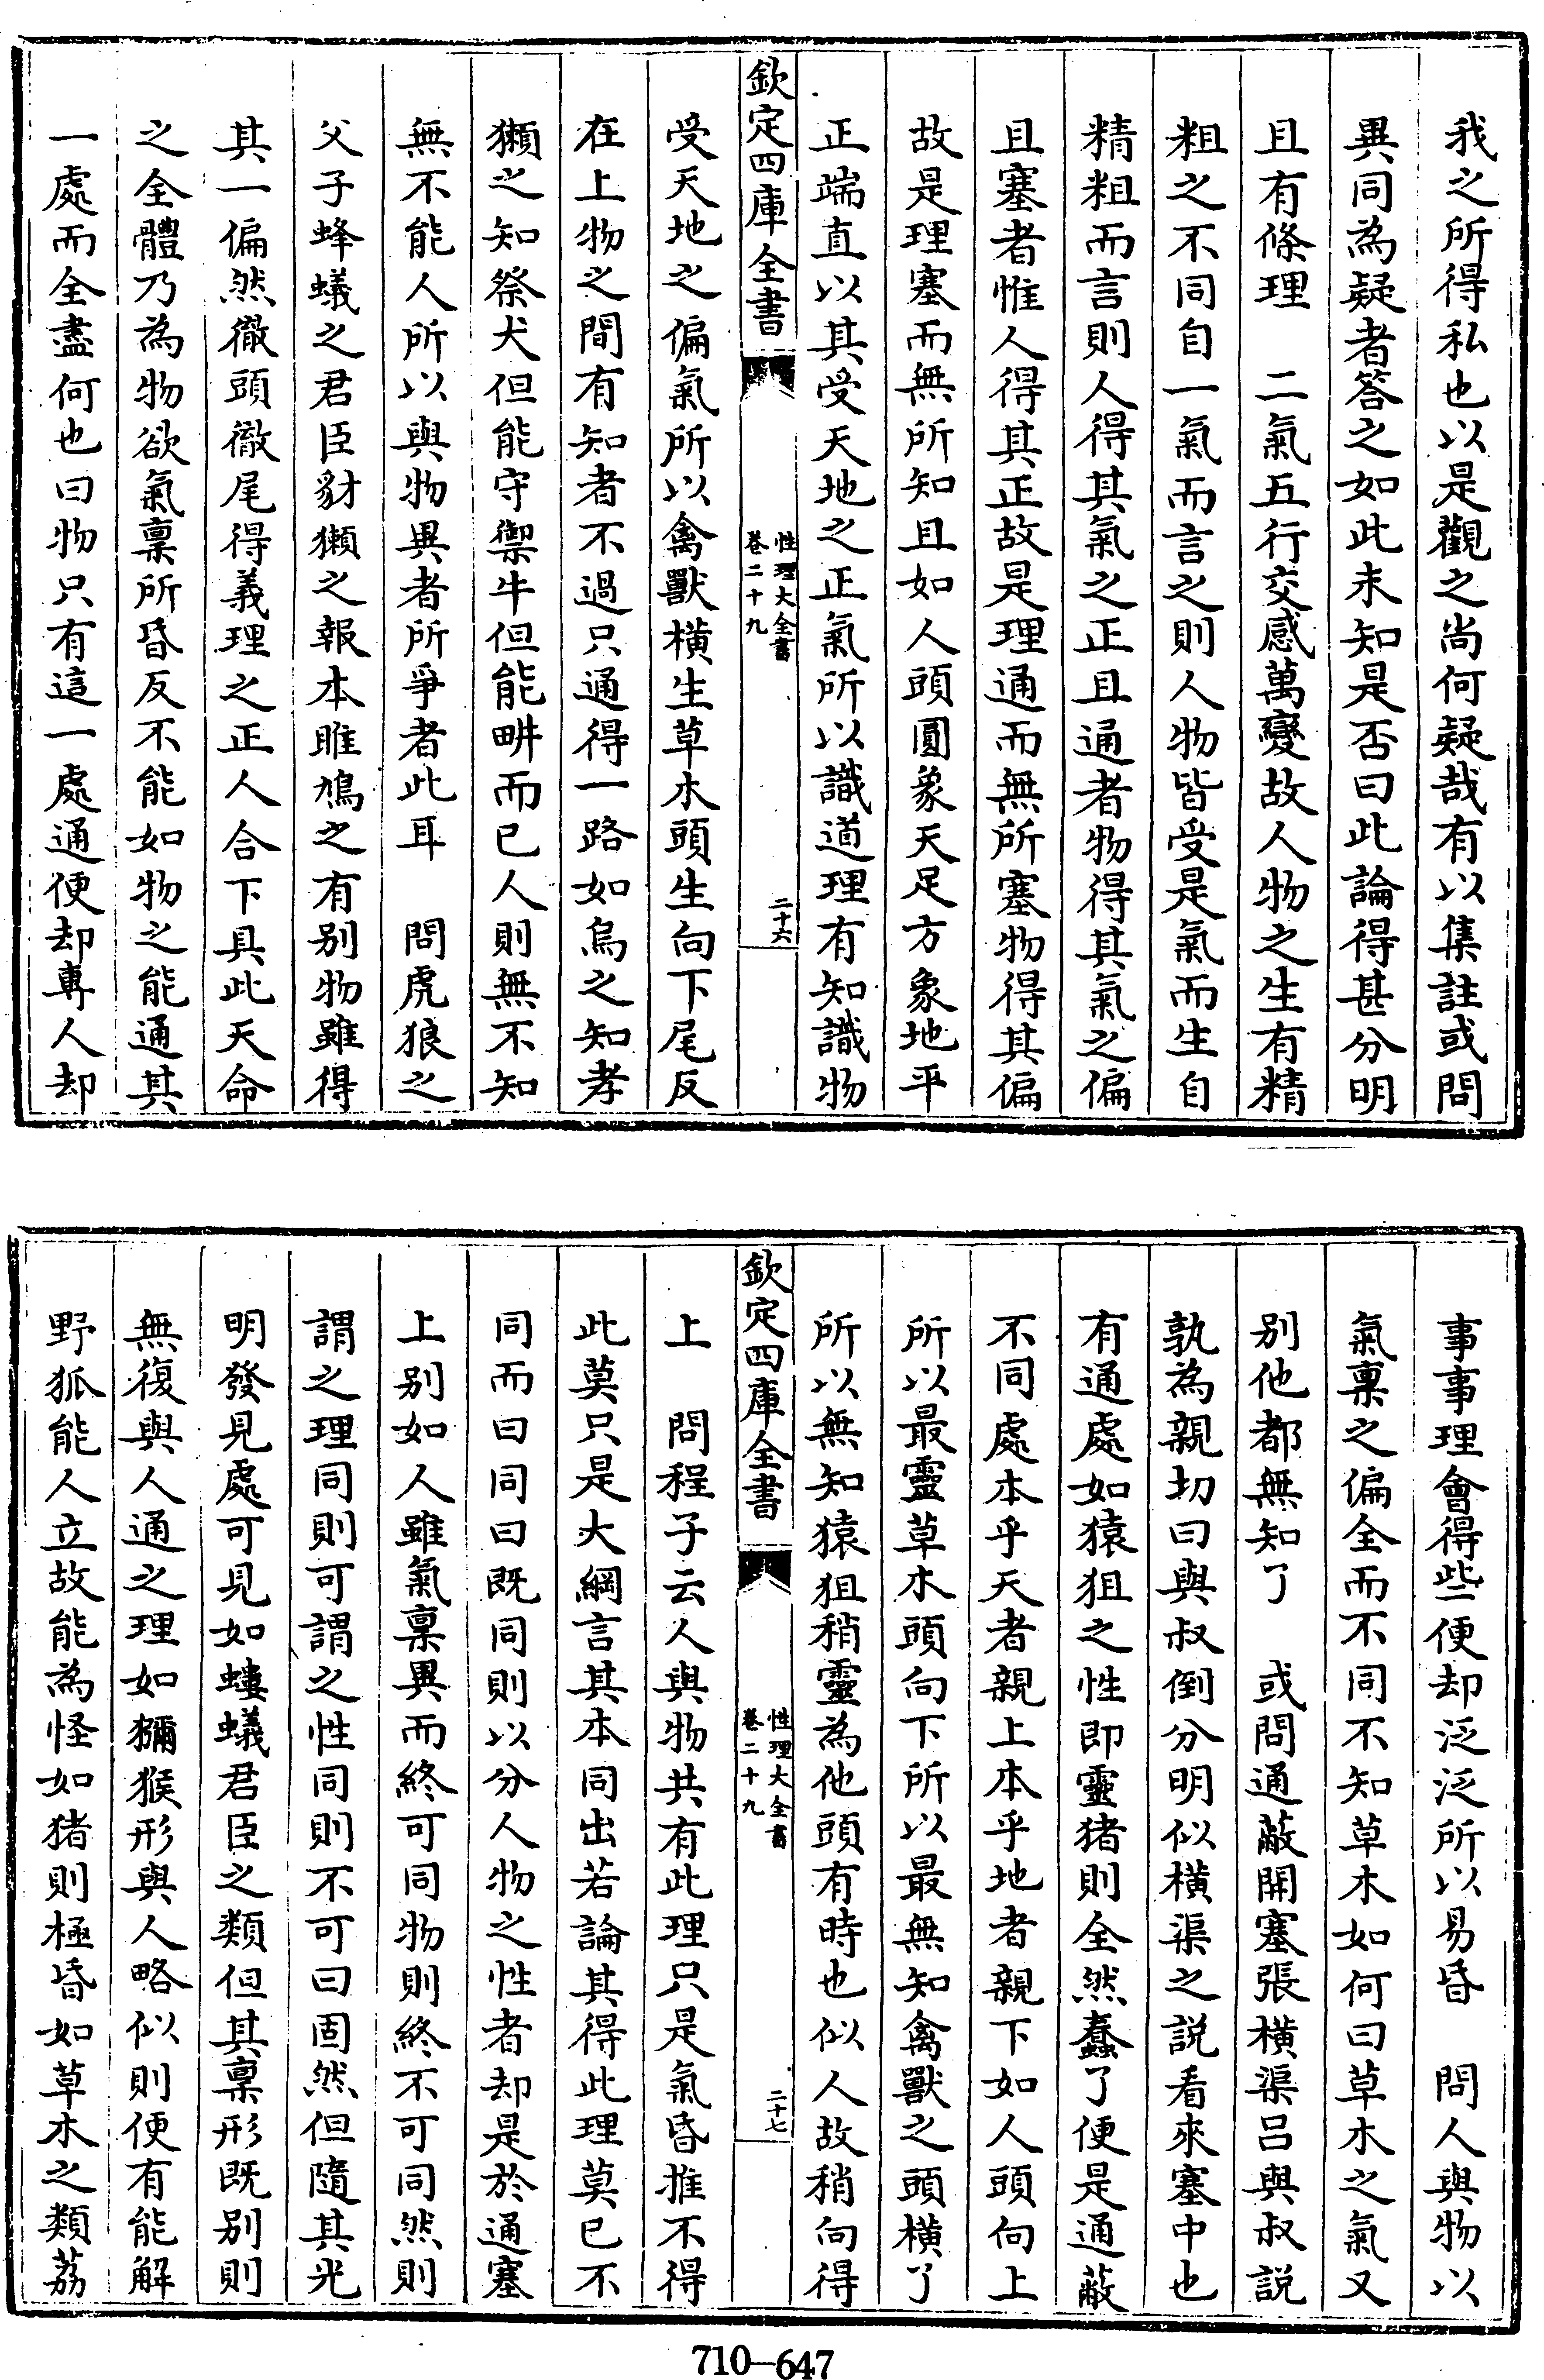 我之所得私也以是觀之尚何疑哉有以集註或問
異同為疑者答之如此未知是否曰此論得甚分明
且有條理　二氣五行交感萬變故人物之生有精
粗之不同自一氣而言之則人物皆受是氣而生自
精粗而言則人得其氣之正且通者物得其氣之偏
且塞者惟人得其正故是理通而無所塞物得其偏
故是理塞而無所知且如人頭圓象天足方象地平
正端直以其受天地之正氣所以識道理有知識物
欽定四庫全書
性理大全書
卷二十九
二十六
受天地之偏氣所以禽獸橫生草木頭生向下尾反
在上物之間有知者不過只通得一路如烏之知孝
獺之知祭犬但能守禦牛但能畊而已人則無不知
無不能人所以與物異者所爭者此耳　問虎狼之
父子蜂蟻之君臣豺獺之報本雎鳩之有别物雖得
其一偏然徹頭徹尾得義理之正人合下具此天命
之全體乃為物欲氣稟所昏反不能如物之能通其
一處而全盡何也曰物只有這一處通便却專人却
事事理會得些便却泛泛所以易昏　問人與物以
氣稟之偏全而不同不知草木如何曰草木之氣又
别他都無知了　或問通蔽開塞張橫渠呂與叔説
孰為親切曰與叔倒分明似橫渠之説看來塞中也
有通處如猿狙之性即靈猪則全然蠢了便是通蔽
不同處本乎天者親上本乎地者親下如人頭向上
所以最靈草木頭向下所以最無知禽獸之頭橫了
所以無知猿狙稍靈為他頭有時也似人故稍向得
欽定四庫全書
性理大全書
卷二十九
二十七
上　問程子云人與物共有此理只是氣昏推不得
此莫只是大綱言其本同出若論其得此理莫已不
同而曰同曰既同則以分人物之性者却是於通塞
上别如人雖氣稟異而終可同物則終不可同然則
謂之理同則可謂之性同則不可曰固然但隨其光
明發見處可見如螻蟻君臣之類但其稟形既别則
無復與人通之理如獼猴形與人略似則便有能解
野狐能人立故能為怪如猪則極昏如草木之類荔
710—647